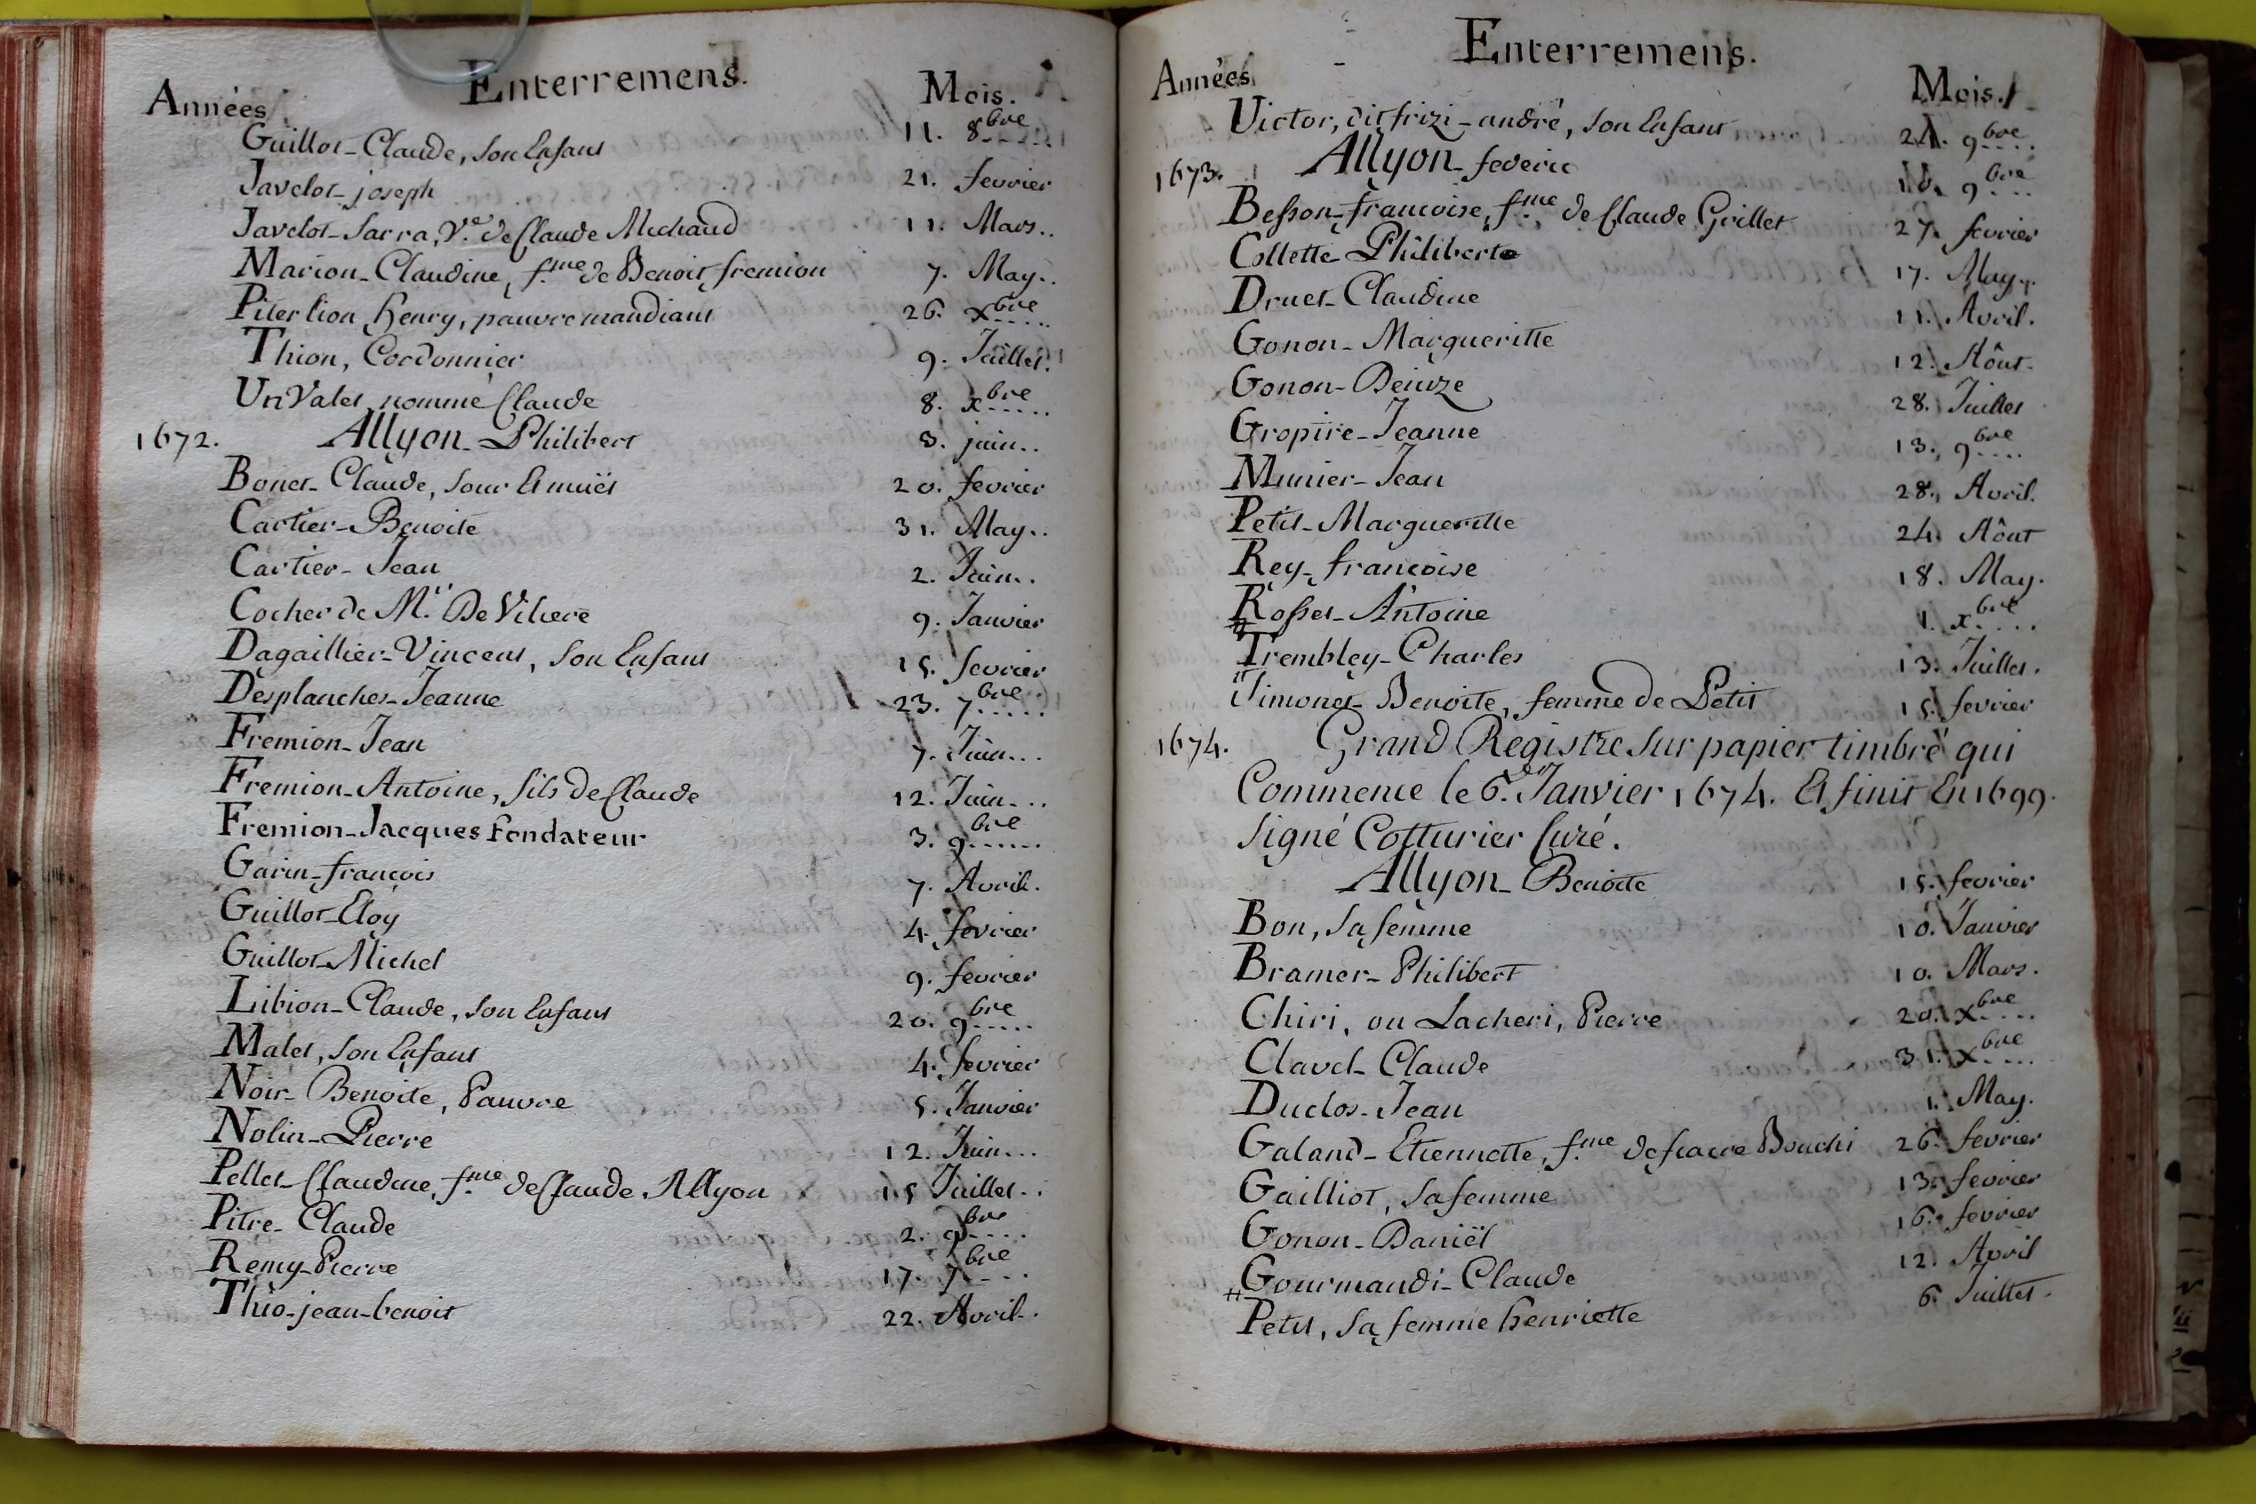 Enterremens.
Années Mois.
Guillot-Claude, son Enfant 11. 8bre
Javelot-joseph 21. fevrier
Javelot-Sarra, Ve. de Claude Michaud 11. Mars..
Marion-Claudine, fme de Benoit fremion 7. May..
Piterlion Henry, pauvre mandiant 26. xbre
Thion, Cordonnier 9. Juillet.
Un Valet nommé Claude 8. xbre
1672. Allyon-Philibert 3. juin..
Bonet-Claude, sour Et muët 20. fevrier
Cartier-Benoite 31. May..
Cartier-Jean 2. Juin..
Cocher de Mr. De Viliere 9. Janvier
Dagaillier-Vincent, son Enfant 15. fevrier
Desplanches-Jeanne 23. 7bre
Fremion-Jean 7. Juin...
Fremion-Antoine, fils de Claude 12. Juin...
Fremion-Jacques Fondateur 3. 9bre
Garin-françois 7. Avril.
Guillot-Eloy 4. fevrier
Guillot-Michel 9. fevrier
Libion-Claude, son Enfant 20. 9bre
Malet, son Enfant 4. fevrier
Noir-Benoite, Pauvre 5. Janvier
Nolin-Pierre 12. Juin...
Pellet-Claudine, fme de Claude Allyon 15 Juillet..
Pitre-Claude 2. 9bre
Remy-Pierre 17. 7bre
Thio-jean-benoit 22. Avril..
Enterremens.
Années Mois.
Victor, dit frizi-andré, son Enfant 21. 9bre
1673. Allyon-federic 10. 9bre
Besson-françoise, fme de Claude Grillet 27. fevrier
Collette Philiberte 17. May..
Druet-Claudine 11. Avril.
Gonon-Margueritte 12. Aôut.
Gonon-Deinze 28. Juillet
Gropire-Jeanne 13. 9bre
Munier-Jean 28. Avril.
Petit-Margueritte 24. Aôut
Rey-françoise 18. May.
Rosset-Antoine 1. xbre
Trembley-Charles 13. Juillet.
Timonet-Benoite, femme de Petit 15 fevrier
1674. Grand Registre sur papier timbré qui
Commence le 6. Janvier 1674. Et finit En 1699.
signé Cotturier Curé.
Allyon-Benoite 15. fevrier
Bon, sa femme 10. Janvier
Bramer-Philibert 10. Mars.
Chiri, ou Lacheri, Pierre 20. xbre
Clavel-Claude 31. xbre
Duclos-Jean 1. May.
Galand-Etiennette, fme de fiacre Bouchi 26. fevrier
Gailliot, sa femme 13. fevrier
Gonon-Daniël 16. fevrier
Gourmandi-Claude 12. Avril
Petit, sa femme henriette 6. Juillet.